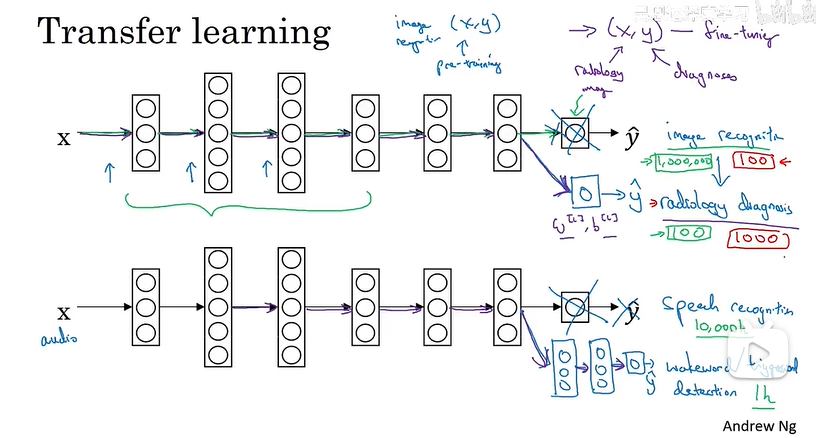 Transfer learning
image (x,y)
pre-training
→ (x,y) — fine-tuning
radiology
diagnoses
x
ŷ
image recognitn
1,000,000 100
ŷ
radiology diagnosis
w[L], b[L]
100 1000
x
audio
ŷ
speech recognition
10,000h
ŷ
wakeword/
detection
1h
Andrew Ng